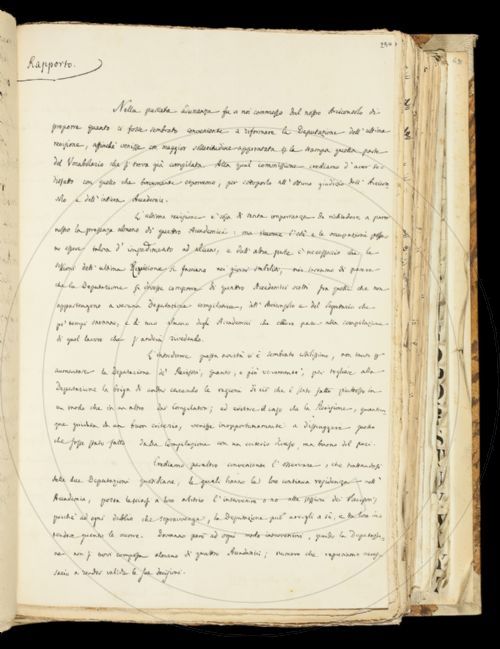 Rapporto.
Nella passata adunanza fu a noi commesso dal nostro Arciconsolo di
proporre quanto ci fosse sembrato conveniente a riformare la Deputazione dell'ultima
revisione, affinchè venisse con maggior sollecitudine apparecchiata per la stampa quella parte
del Vocabolario che si trova già compilata. Alla qual commissione crediamo d'aver so-
disfatto con quello che brevemente esporremo, per sottoporlo all'ottimo giudizio dell'Arcicon-
solo e dell'intera Accademia.
L'ultima revisione è cosa di tanta importanza da richiedere a parer
nostro la presenza almeno di quattro Accademici; ma siccome l'età e le occupazioni posso-
no essere talora d'impedimento ad alcuni, e dall'altra parte è necessario che le
sessioni dell'ultima Revisione si facciano nei giorni stabiliti, noi saremmo di parere
che la Deputazione si dovesse comporre di quattro Accademici scelti fra quelli che non
appartengono a veruna Deputazione compilatrice, dell'Arciconsolo e del Segretario che
pe' tempi saranno, e di uno almeno degli Accademici che ebbero parte alla compilazione
di quel lavoro che si andrà rivedendo.
L'introdurre questa novità ci è sembrato utilissimo, non tanto per
aumentare la Deputazione de' Revisori, quanto, e più veramente, per togliere alla
Deputazione la briga di andar cercando la ragione di ciò che è stato fatto piuttosto in
un modo che in un altro dai Compilatori, ed evitare il caso che la Revisione, quantun-
que guidata da un buon criterio, venisse inopportunamente a distruggere quello
che fosse stato fatto dalla Compilazione con un criterio diverso, ma buono del pari.
Crediamo peraltro conveniente l'osservare, che trattandosi
delle due Deputazioni quotidiane, le quali hanno la loro continua residenza nell'
Accademia, possa lasciarsi a loro arbitrio l'intervenire o no alle sessioni dei Revisori;
poichè ad ogni dubbio che sopravvenga, la Deputazione può averli a sé, e da loro in-
tendere quanto le occorre. Dovranno però ad ogni modo intervenirvi, quando la Deputazio-
ne non si trovi composta almeno di quattro Accademici; numero che reputiamo neces-
sario a render valide le sue decisioni.